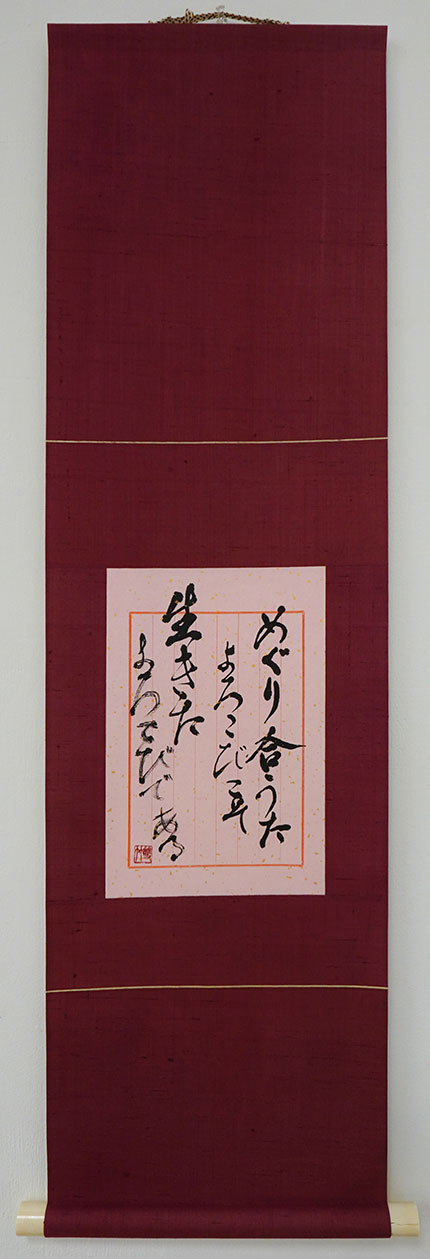 めぐり合うた
よろこび
生きた
よろこびである